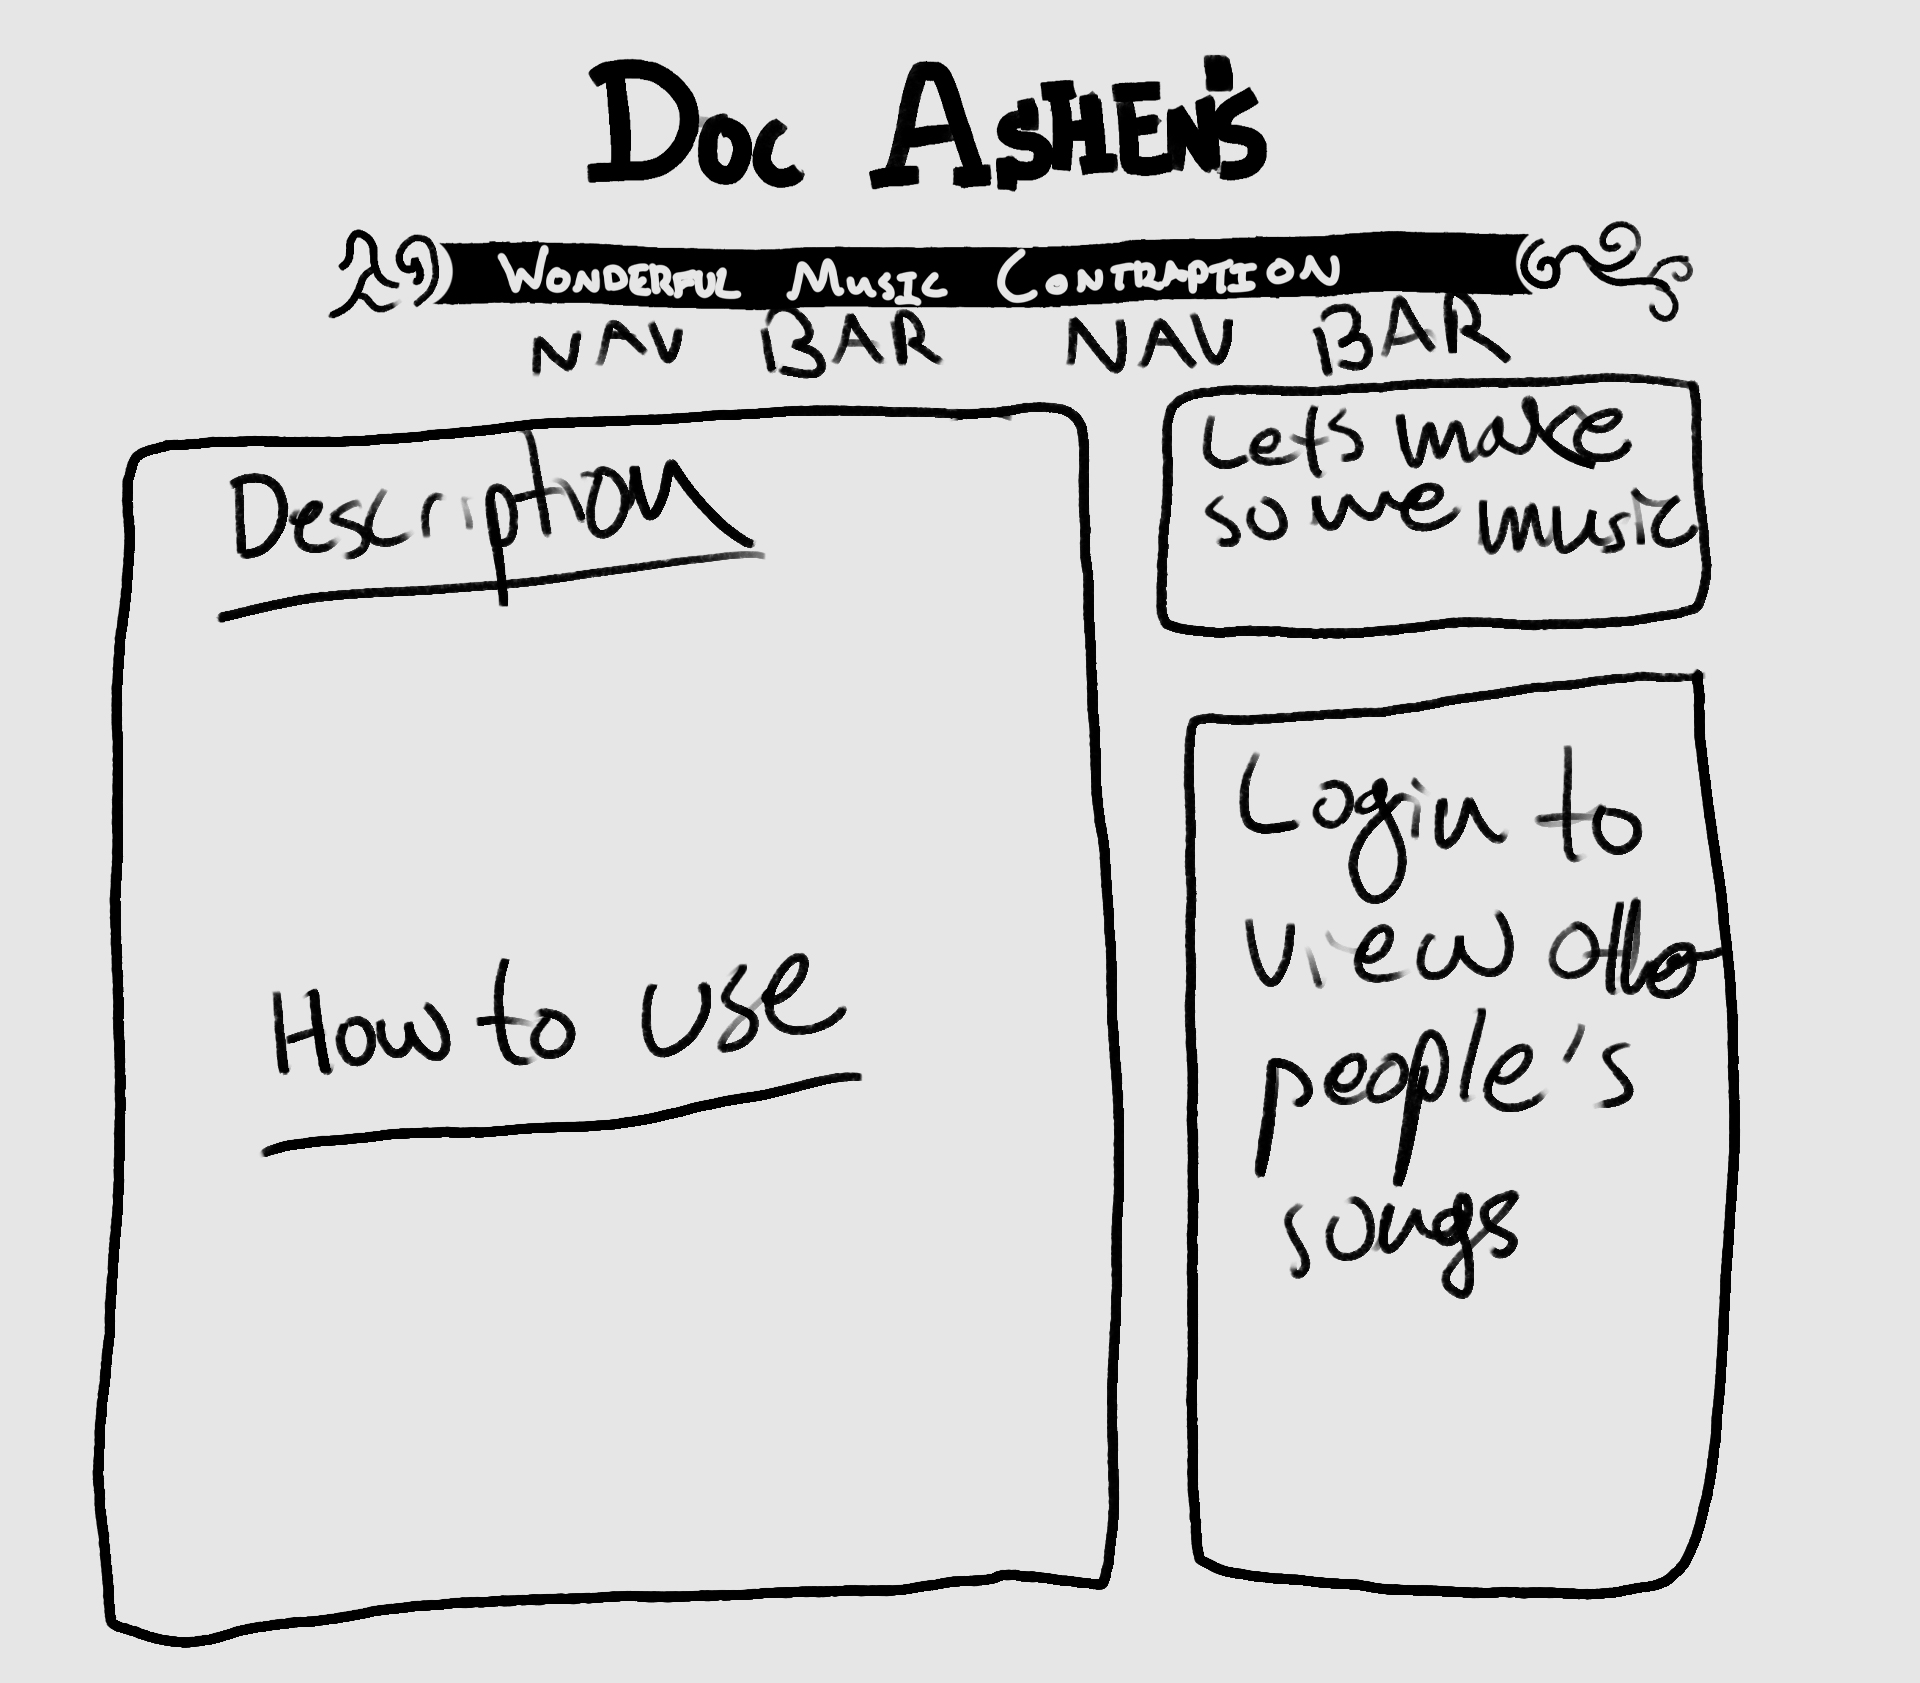 DOC ASHEN'S
WONDERFUL MUSIC CONTRAPTION
NAV BAR NAV BAR
Description
How to use
Lets make
some music
Login to
view other
people's
songs